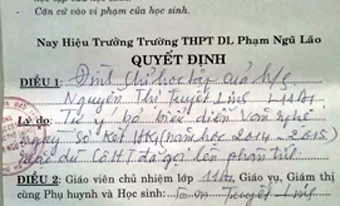 - Căn cứ vào vi phạm của học sinh.
Nay Hiệu Trưởng Trường THPT DL Phạm Ngũ Lão
QUYẾT ĐỊNH
ĐIỀU 1: Đình chỉ học tập của h/s
Nguyễn Thị Tuyết Linh 11A11
Lý do: Tự ý bỏ biểu diễn văn nghệ
ngày sơ kết HK1 (năm học 2014 - 2015)
mặc dù cô HT đã gọi lên phân tích
ĐIỀU 2: Giáo viên chủ nhiệm lớp 11A11, Giáo vụ, Giám thị
cùng Phụ huynh và Học sinh: Em Tuyết Linh